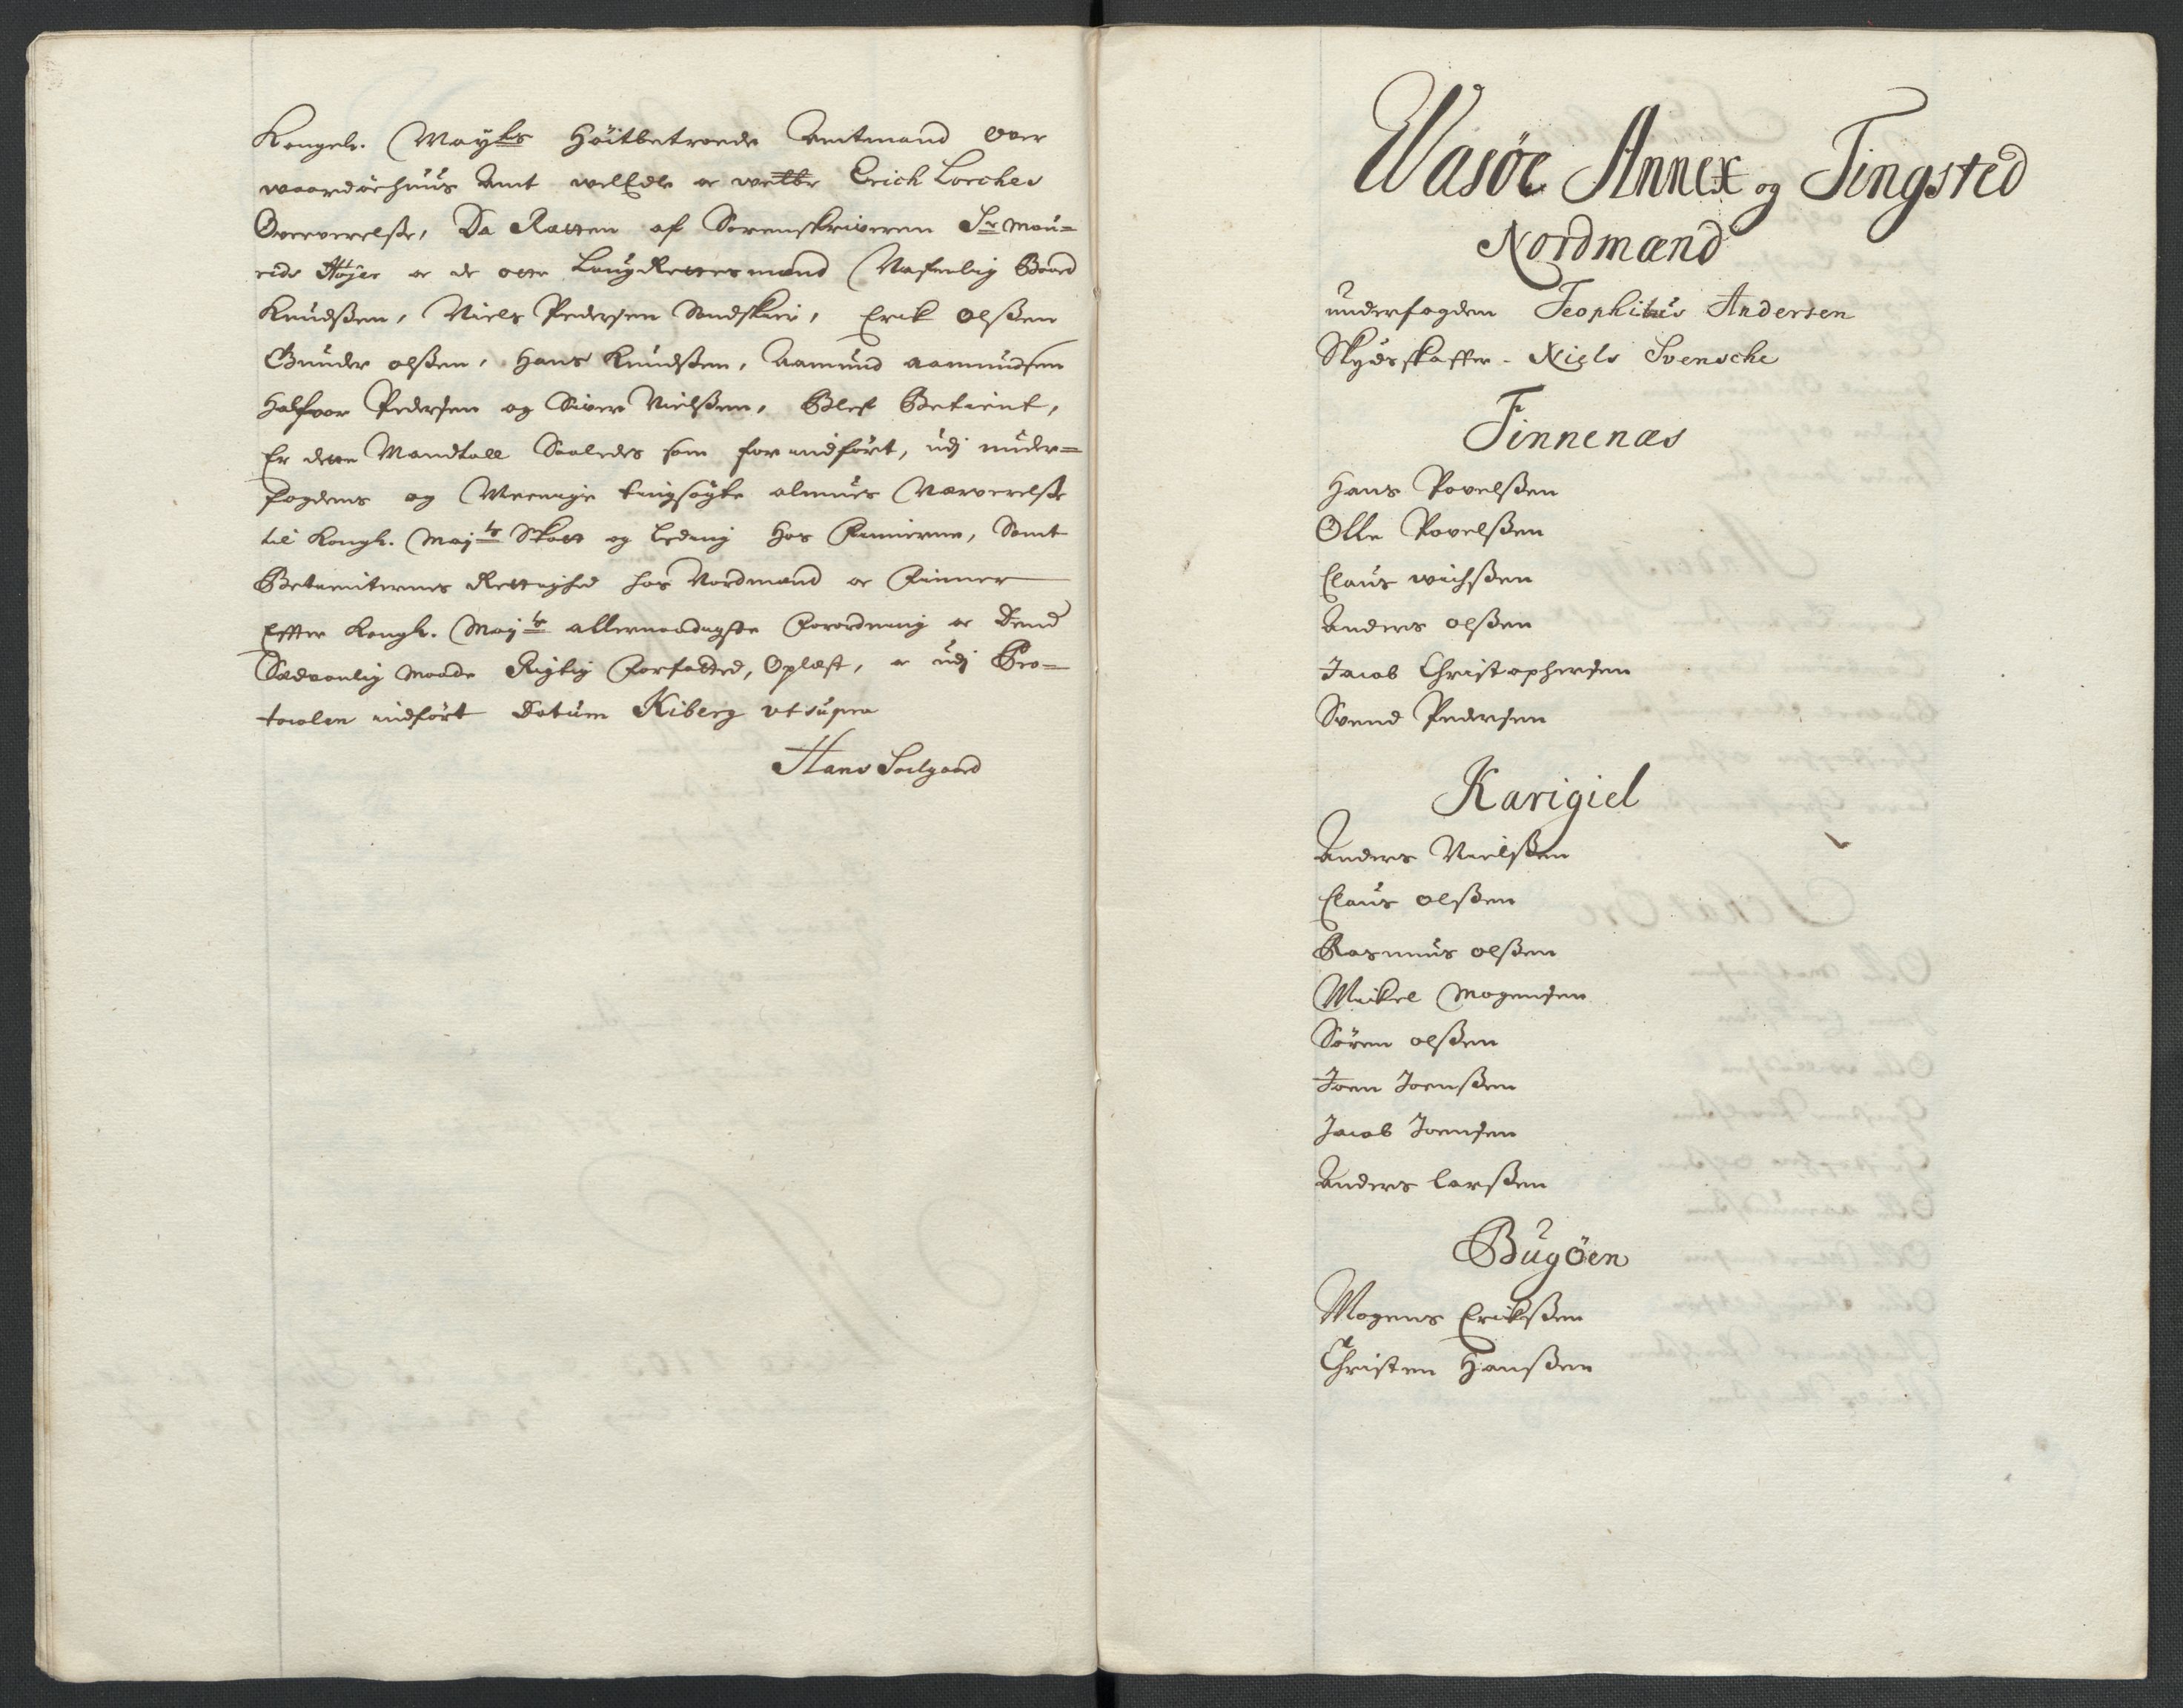 Kongel. Mayts Høitbetroede Amtmand over
waardøehuus Amt welEdle oc wælbr Erich Lorches
Oververelsse, Da Rætten af Sorenskriveren Sr Mou=
ridz Høyer oc de otte LaugRettesmænd Nafnlig Baard
Knudssen, Niels Pedersen Sundskier, Erik Olssen
Gunder olssen, Hans Knudssen, Aamund aamundsen
Halfvor Pedersen og Siver Nielssen, Blef Betient,
Er dette Mandtall Saaledes som for indført, udj under=
fogdens og Meenige tingsøgte almues Nærverelsse
til Kongl. Mayts Skatt og Leding hos Finnerne, Samt
Betienternes Rettighed hos Nordmænd oc Finner
Effter Kongl. Mayts allernaadigste Forordning oc Dend
Sædvanlig Maade Rigtig Forfatted, Oplæst, oc udj Pro=
tocolen indført Datum Kiberg ut supra
Hans Soelgaard
Wasöe Annex og Tingsted
Nordmænd
underfogden Teophilus Andersen
Skydsskaffer - Niels Svensche
Finnenæs
Hans Povelssen
Olle Povelssen
Claus
Anders olssen
Jacob Christophersen
Svend Pedersen
Karigiel
Anders Nielssen
Claus olssen
Rasmus olssen
Mickel Mogensen
Sören olssen
Joen Joenssen
Jacob Joensen
Anders Larssen
Bugöen
Mogens Erikssen
Christen Hanssen